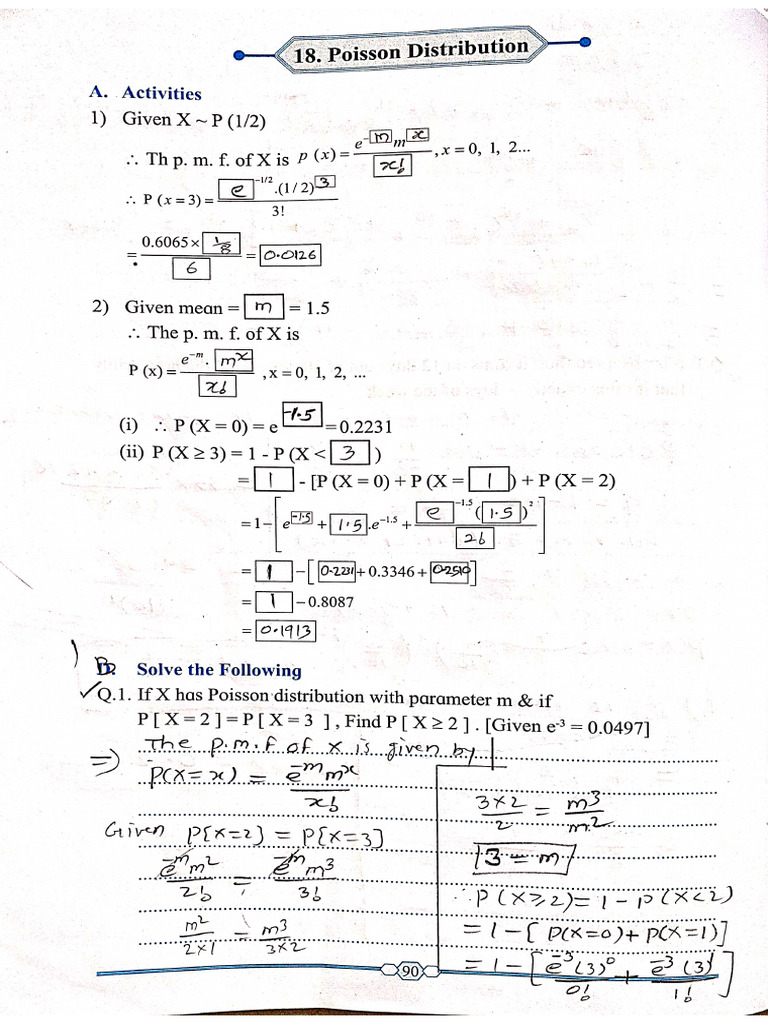 18. Poisson Distribution
A. Activities
1) Given X ~ P (1/2)
∴ Th p. m. f. of X is p (x) = e^-m m^x / x! , x = 0, 1, 2...
∴ P (x = 3) = e^-1/2 .(1 / 2)^3 / 3!
= 0.6065 × 1/8 / 6 = 0.0126
2) Given mean = m = 1.5
∴ The p. m. f. of X is
P (x) = e^-m . m^x / x! , x = 0, 1, 2, ...
(i) ∴ P (X = 0) = e^-1.5 = 0.2231
(ii) P (X ≥ 3) = 1 - P (X < 3 )
= 1 - [P (X = 0) + P (X = 1 ) + P (X = 2)
= 1 - [ e^-1.5 + 1.5 .e^-1.5 + e^-1.5 ( 1.5 )^2 / 2! ]
= 1 - [ 0.2231 + 0.3346 + 0.2510 ]
= 1 - 0.8087
= 0.1913
B. Solve the Following
✓Q.1. If X has Poisson distribution with parameter m & if
P [ X = 2 ] = P [ X = 3 ] , Find P [ X ≥ 2 ] . [Given e^-3 = 0.0497]
⇒ The p.m.f of x is given by
P(X=x) = e^-m m^x / x!
Given P[x=2] = P[x=3]
e^-m m^2 / 2! = e^-m m^3 / 3!
m^2 / 2×1 = m^3 / 3×2
3×2 / 2 = m^3 / m^2
3 = m
∴ P(X≥2) = 1 - P(X<2)
= 1 - [ P(X=0) + P(X=1)]
= 1 - [ e^-3 (3)^0 / 0! + e^-3 (3)^1 / 1! ]
90